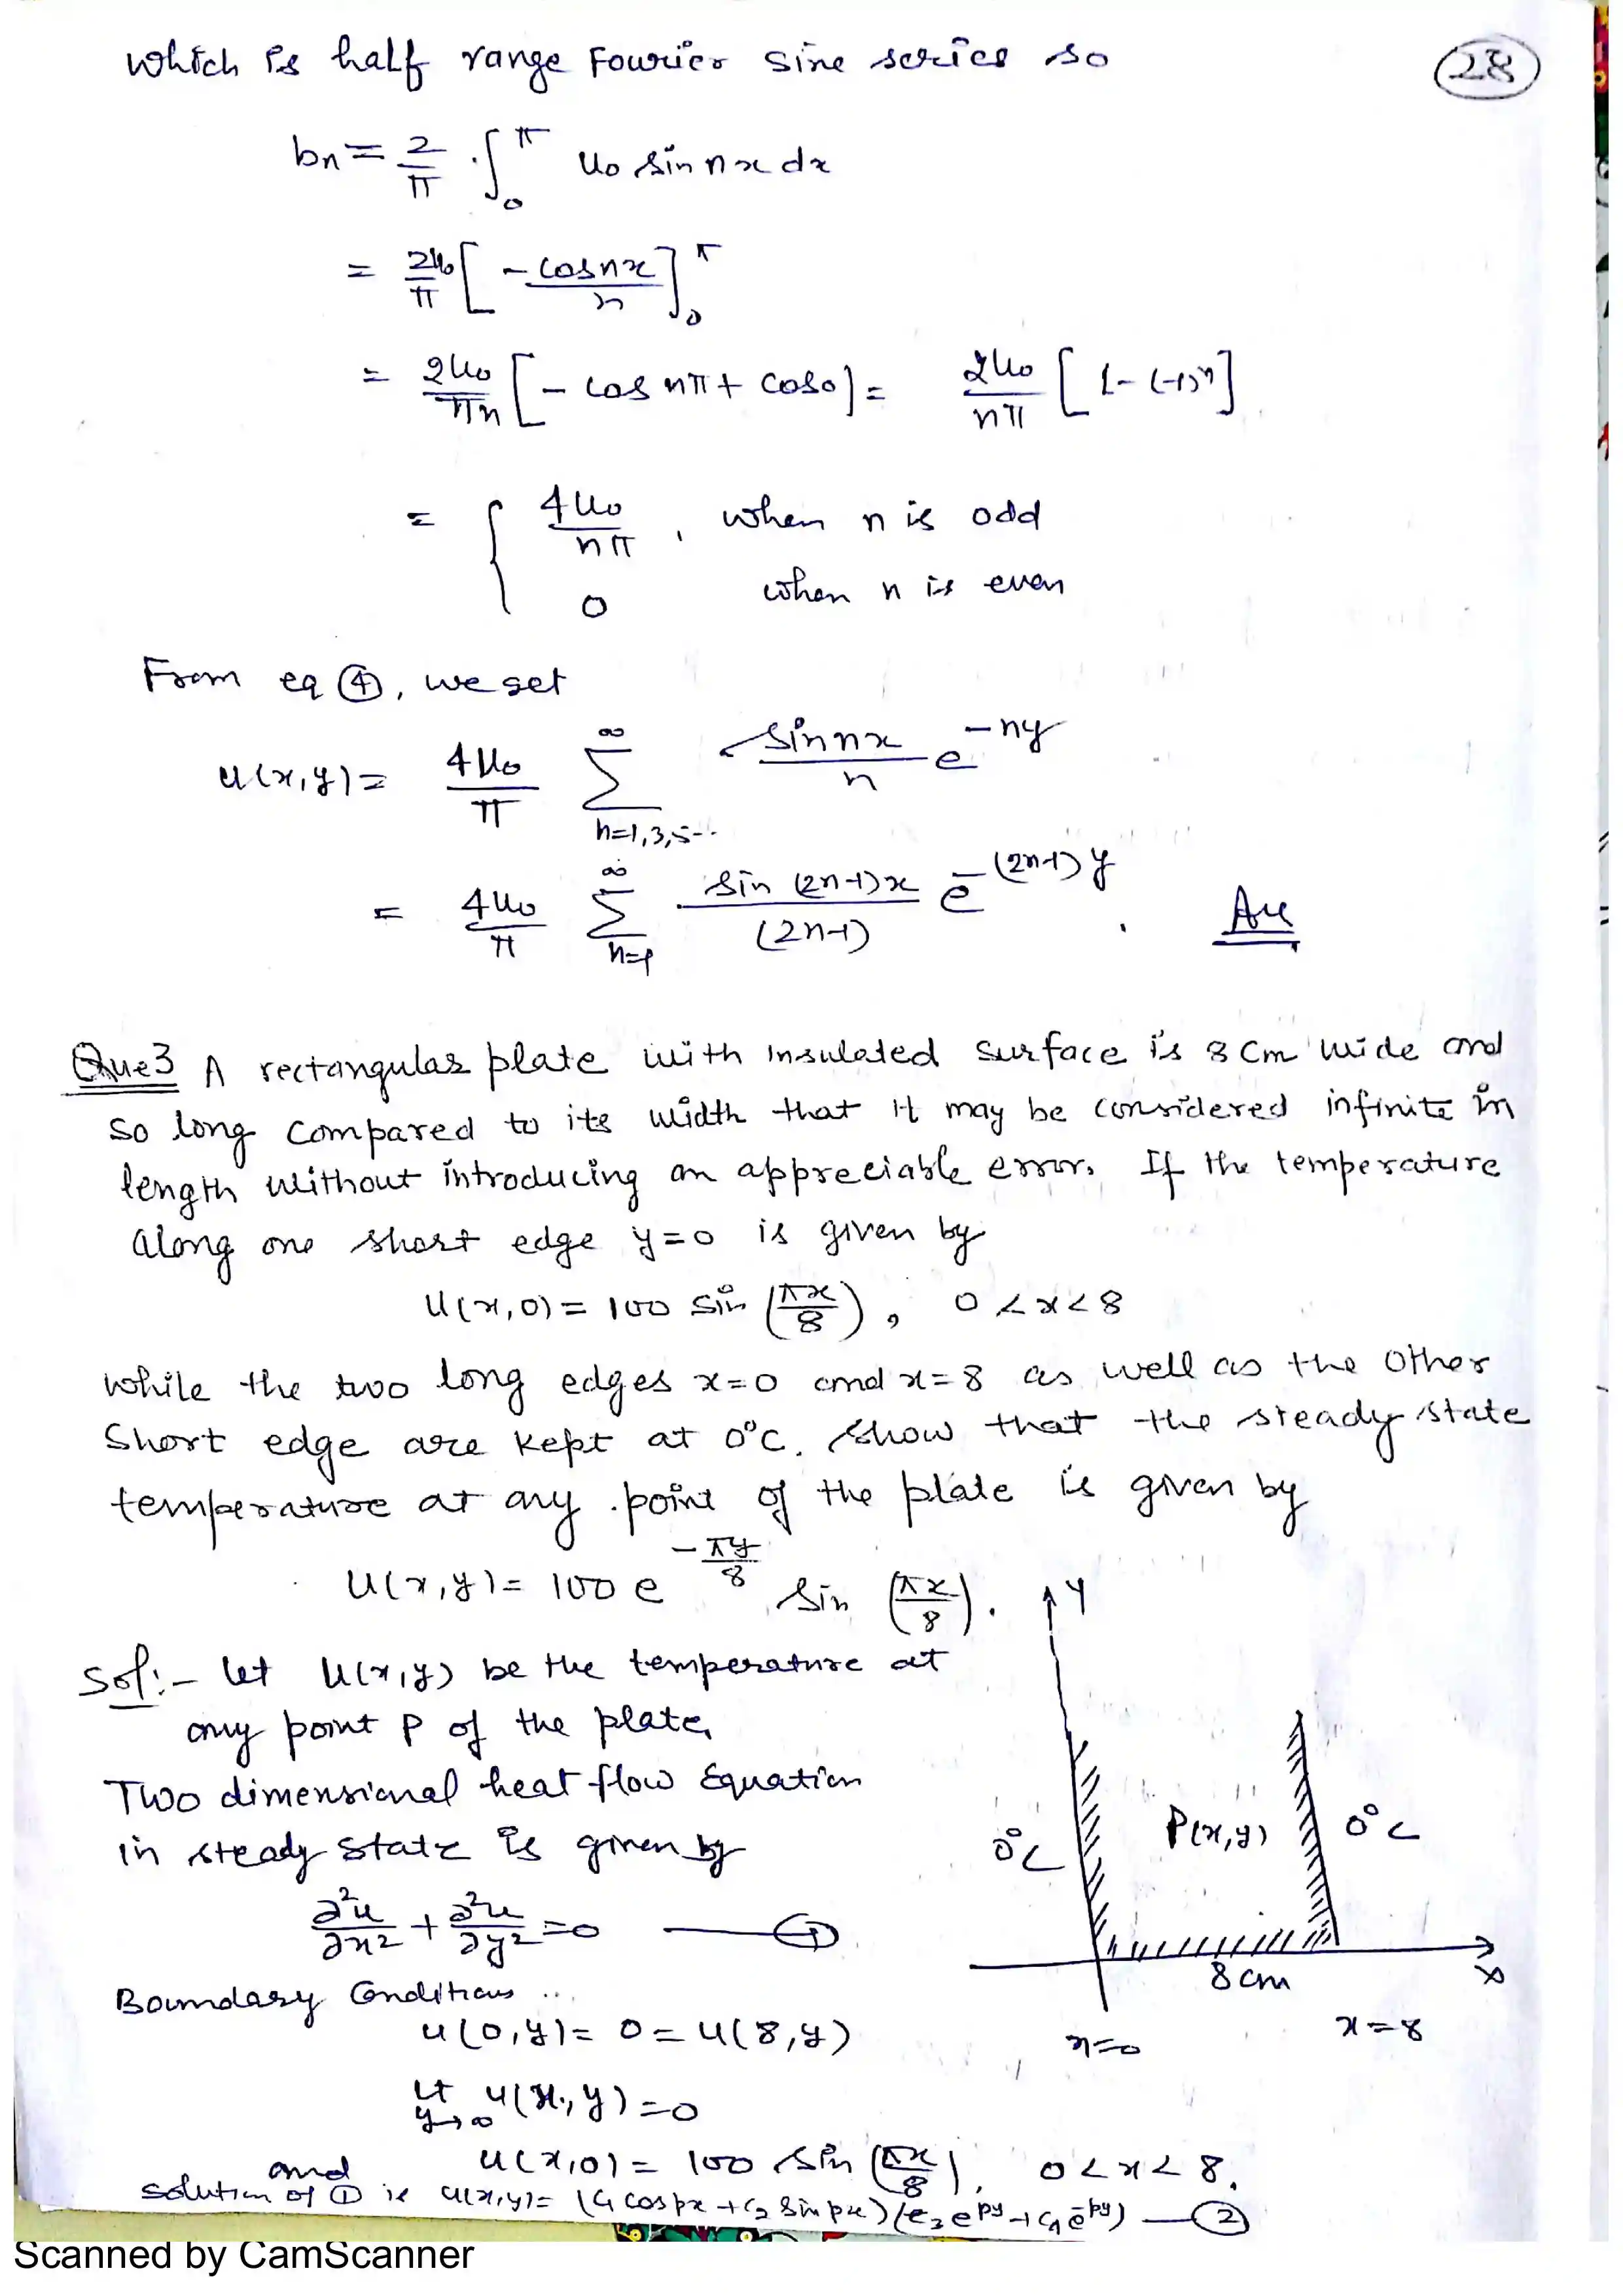 which is half range Fourier Sine series so
28
bn = 2/π . ∫₀^π u₀ sin nx dx
= 2u₀/π [ -cos nx / n ]₀^π
= 2u₀/πn [ - cos nπ + cos 0 ] = 2u₀/nπ [ 1-(-1)ⁿ ]
= { 4u₀/nπ , when n is odd
0 when n is even
From eq ④, we get
u(x,y) = 4u₀/π ∑_{n=1,3,5--}^∞ sin nx / n e^{-ny}
= 4u₀/π ∑_{n=1}^∞ sin (2n-1)x / (2n-1) e^{-(2n-1)y} . Ans
Que3 A rectangular plate with insulated surface is 8 cm wide and
so long compared to its width that it may be considered infinite in
length without introducing an appreciable error. If the temperature
along one short edge y=0 is given by
u(x,0) = 100 sin (πx/8) , 0 < x < 8
while the two long edges x=0 and x=8 as well as the other
Short edge are kept at 0°C. Show that the steady state
temperature at any point of the plate is given by
u(x,y) = 100 e^{-πy/8} sin (πx/8).
Sol:- let u(x,y) be the temperature at
any point P of the plate,
Two dimensional heat flow Equation
in steady state is given by
∂²u/∂x² + ∂²u/∂y² = 0 — ①
Boundary Conditions ..
u(0,y) = 0 = u(8,y)
Lt_{y→∞} u(x,y) = 0
and u(x,0) = 100 sin (πx/8), 0 < x < 8.
solution of ① is u(x,y) = (c₁ cos px + c₂ sin px) (c₃ e^{py} + c₄ e^{-py}) — ②
Y
0°C
P(x,y)
0°C
8 cm
X
x=0
x=8
Scanned by CamScanner